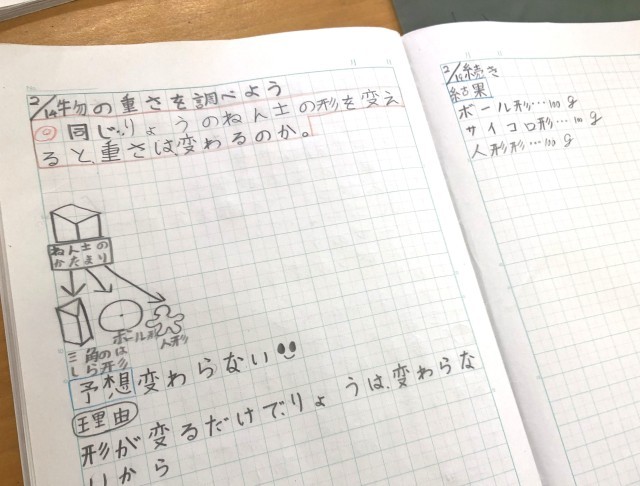 2/14 物の重さを調べよう
め 同じりょうのねん土の形を変え
ると、重さは、変わるのか。
ねん土の
かたまり
三角のは
しら形
ボール形
人形
予想 変わらない
理由
形が変るだけで、りょうは、変わらな
いから
2/14 続き
結果
ボール形…100g
サイコロ形…100g
人形形…100g